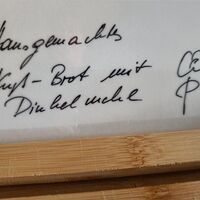 Hausgemachtes
Nuß-Brot mit
Dinkelmehl